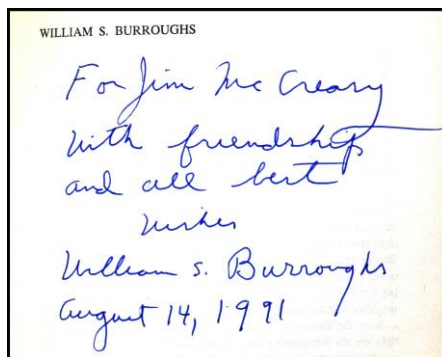 WILLIAM S. BURROUGHS
For Jim Mc Creary
with friendship
and all best
wishes
William S. Burroughs
August 14, 1991